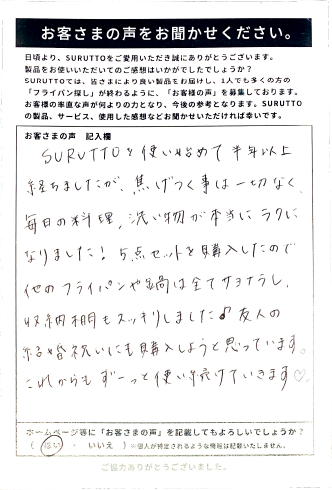 お客さまの声をお聞かせください。
日頃より、SURUTTOをご愛用いただき誠にありがとうございます。
製品をお使いいただいてのご感想はいかがでしたでしょうか？
SURUTTOでは、皆さまにより良い製品をお届けし、1人でも多くの方の
「フライパン探し」が終わるように、「お客様の声」を募集しております。
お客様の率直な声が何よりの力となり、今後の参考となります。SURUTTO
の製品、サービス、使用した感想などお聞かせいただければ幸いです。
お客さまの声　記入欄
SURUTTOを使い始めて半年以上
経ちましたが、焦げつく事は一切なく、
毎日の料理、洗い物が本当にラクに
なりました！5点セットを購入したので
他のフライパンや鍋は全てサヨナラし、
収納棚もスッキリしました♪友人の
結婚祝いにも購入しようと思っています。
これからもずーっと使い続けていきます♡
ホームページ等に「お客さまの声」を記載してもよろしいでしょうか？
（　はい　・　いいえ　）※個人が特定されるような情報は記載いたしません。
ご協力ありがとうございました。